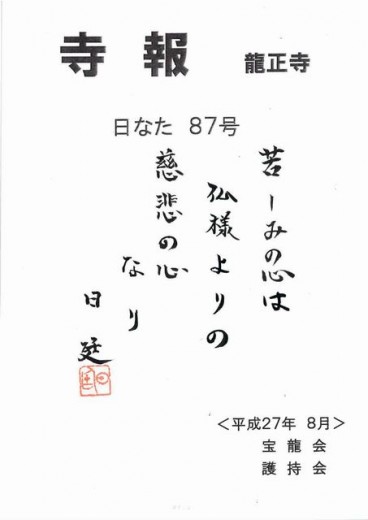 寺報
龍正寺
日なた 87号
苦しみの心は
仏様よりの
慈悲の心
なり
日廷
<平成27年 8月>
宝龍会
護持会